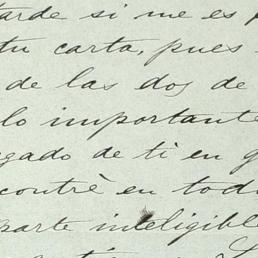 tarde si me es p
tu carta, pues
de las dos de
lo importante
gado de ti en
contrè en tod
parte inteligible